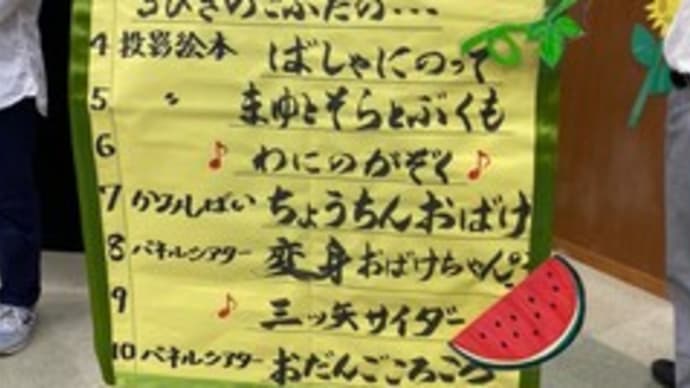 3びきのこぶたの・・・
4 投影絵本 ばしゃにのって
5 〃 まゆとそらとぶくも
6 ♪ わにのかぞく ♪
7 ちょうちんおばけ
8 パネルシアター 変身おばけちゃん
9 ♪ 三ッ矢サイダー
10 パネルシアター おだんごころころ